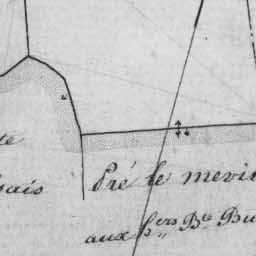 te
sais
Pré le mevi
aux hers Bte Bu